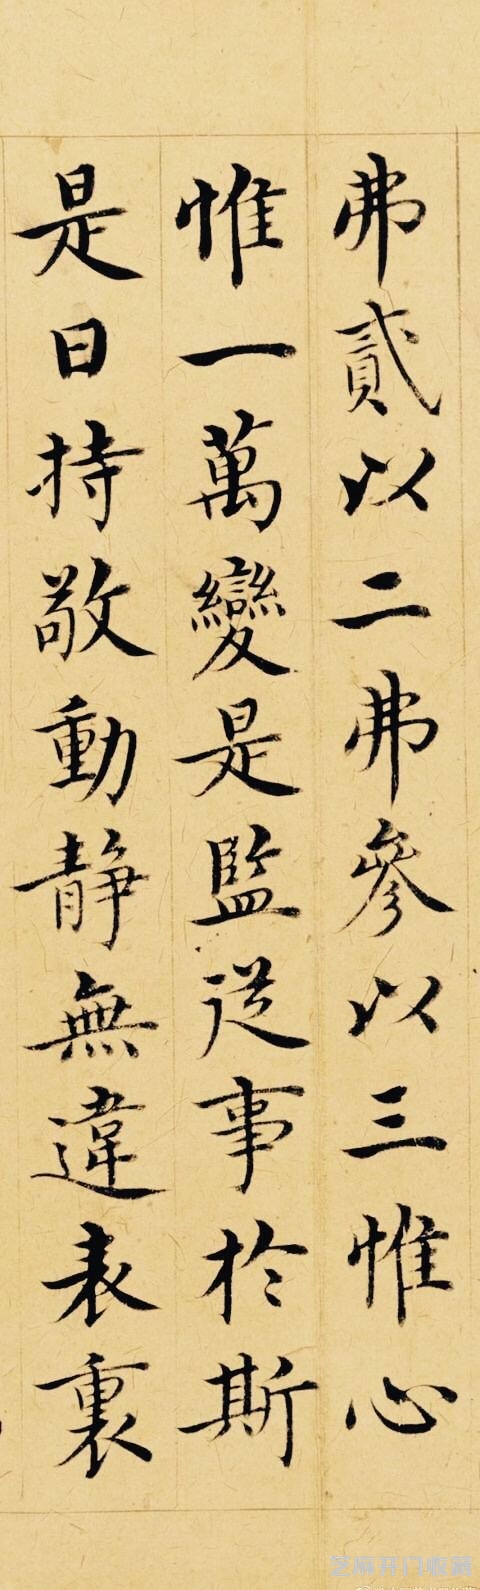 弗貳以二弗參以三惟心
惟一萬變是監從事於斯
是日持敬動静無違表裏
芝麻开门收藏